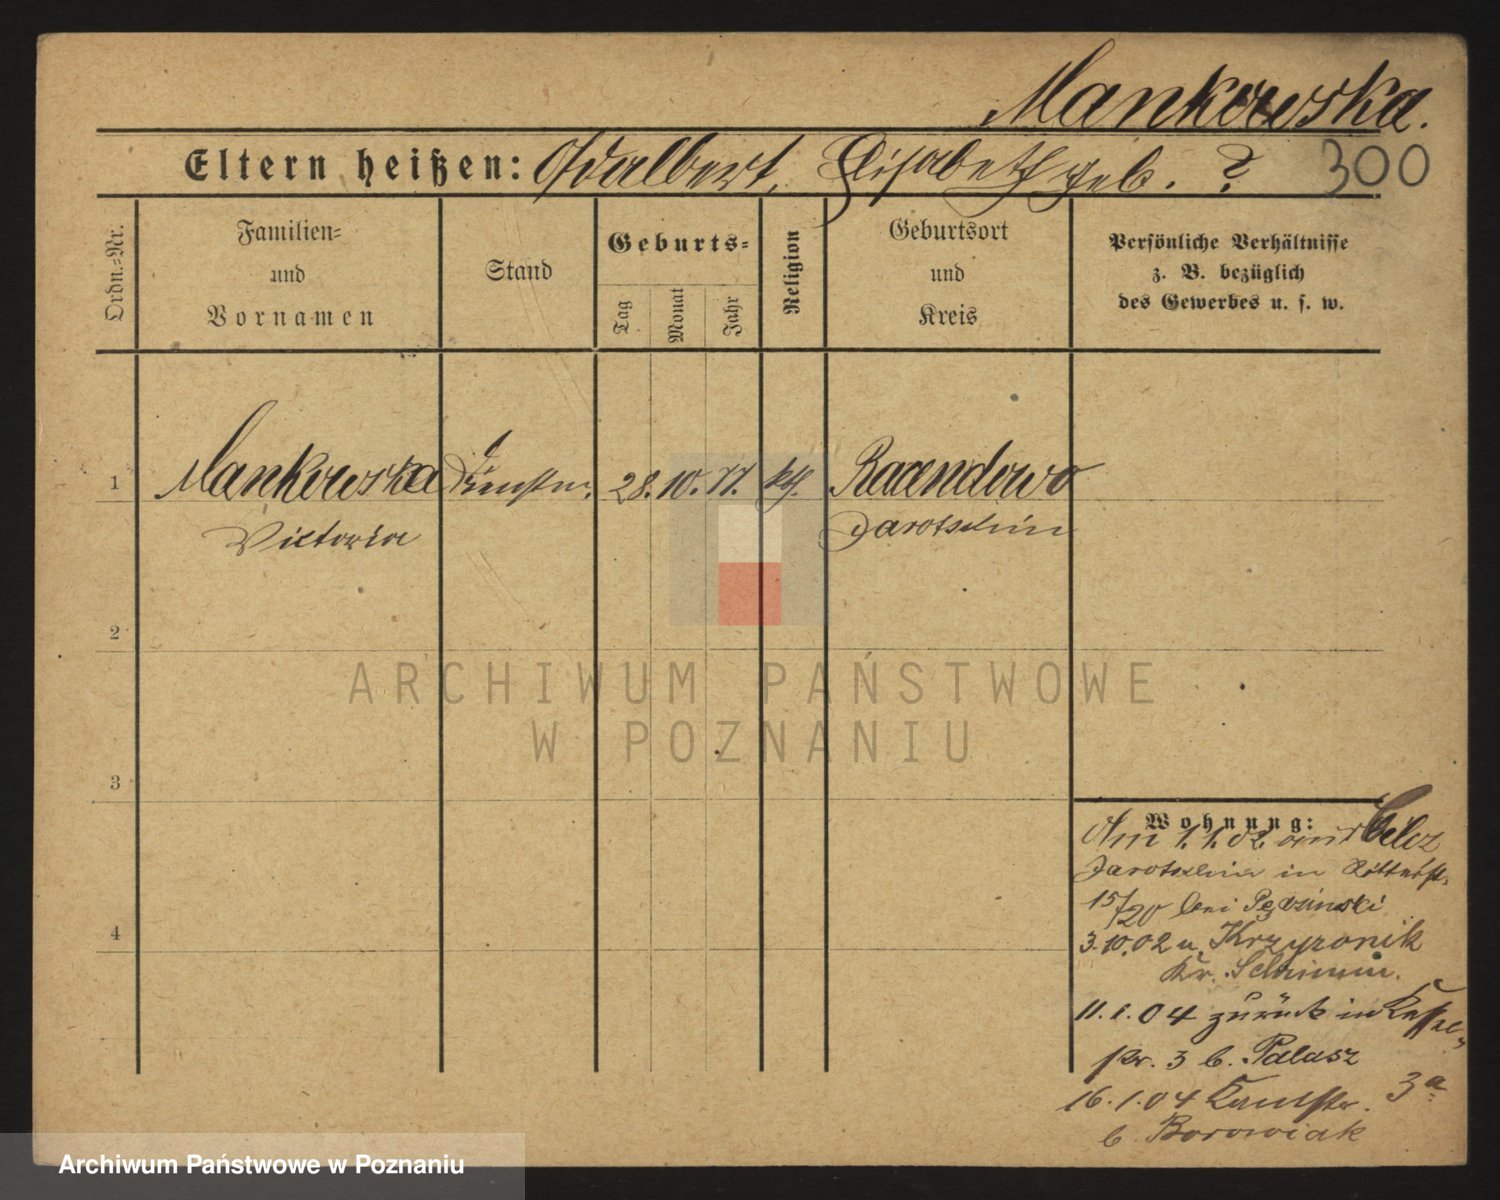 Mankowska.
Eltern heißen: Adalbert, Elisabeth geb. ?
300
Ordn.-Nr.
Familien-
und
Vornamen
Stand
Geburts-
Tag
Monat
Jahr
Religion
Geburtsort
und
Kreis
Persönliche Verhältnisse
z. B. bezüglich
des Gewerbes u. s. w.
1
Mankowska
28. 10. 77. kth.
Racendowo
Victoria
Jarotschin
2
3
4
ARCHIWUM PAŃSTWOWE
W POZNANIU
Wohnung:
Am 1.1.02 aus
Jarotschin in
15/20 bei
3.10.02 n.
Kr. Schrimm.
11.1.04 zurück in
3 b. Palasz
16.1.04 3a
b. Borowiak
Archiwum Państwowe w Poznaniu